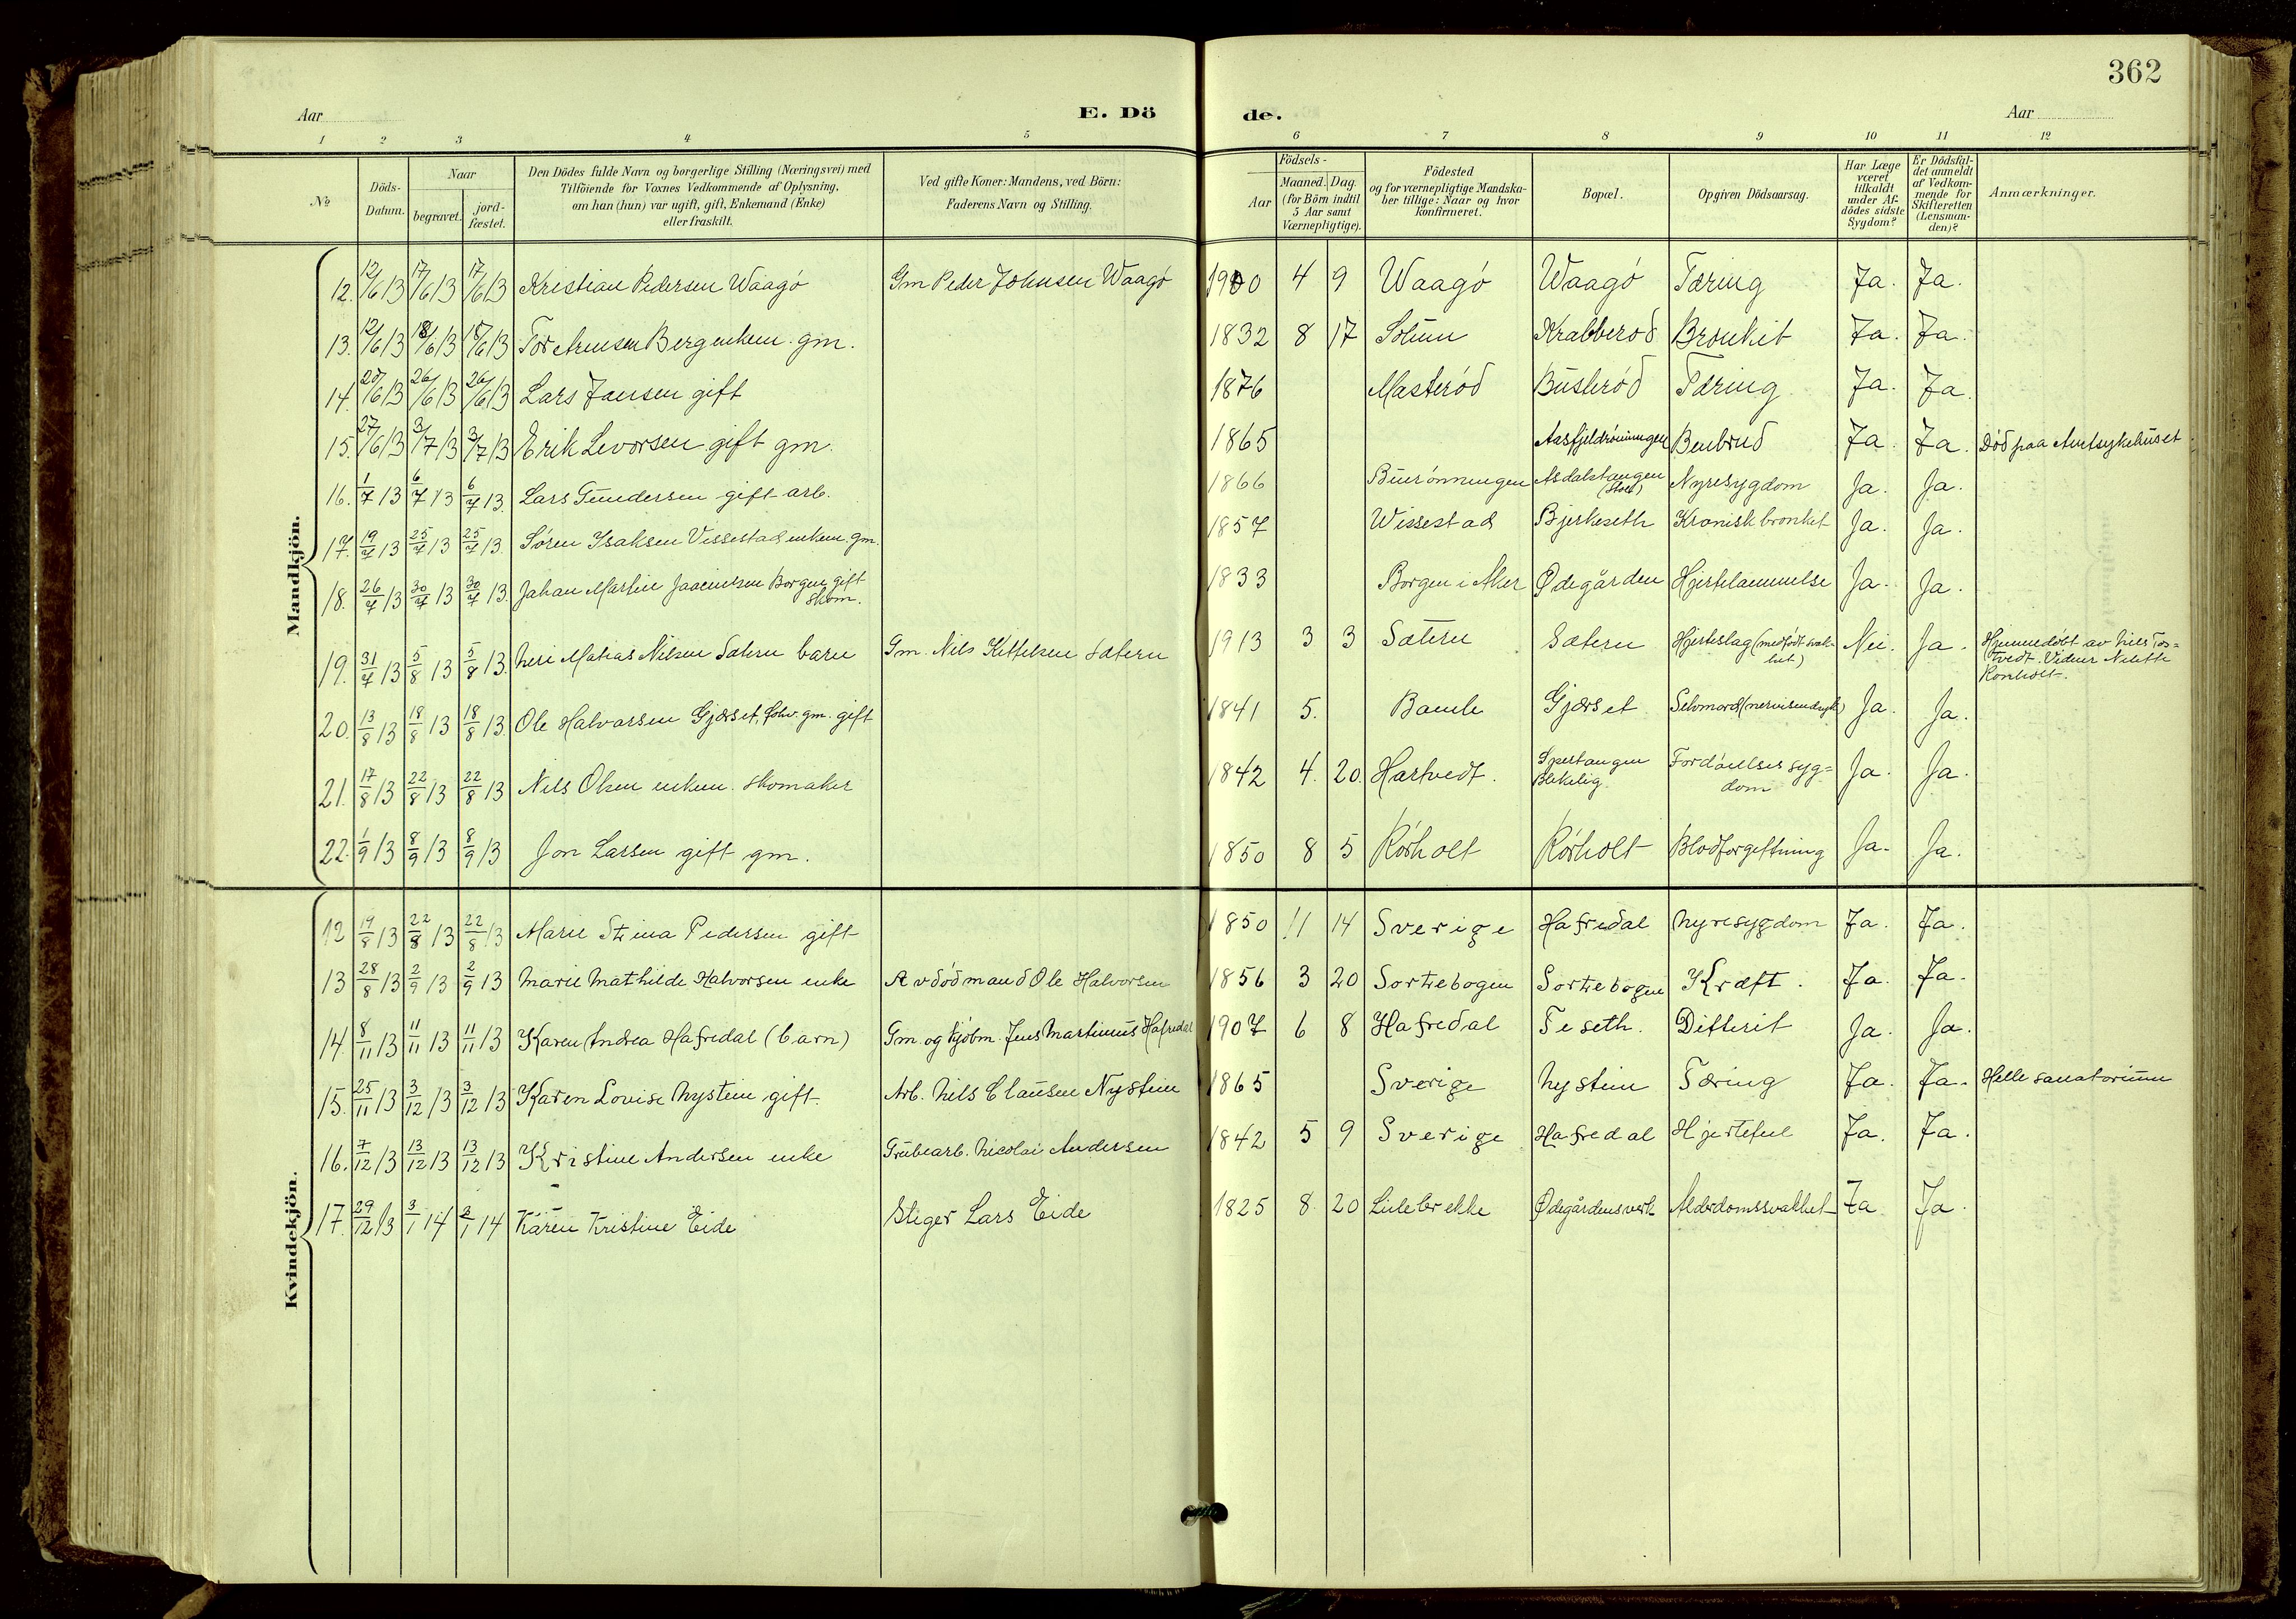 362
Aar E. Dö de. Aar
1 2 3 4 5 6 7 8 9 10 11 12
No
Döds-Datum.
Naar
begravet.
jord-fæstet.
Den Dödes fulde Navn og borgerlige Stilling (Næringsvei) med
Tilföiende for Voxnes Vedkommende af Oplysning,
om han (hun) var ugift, gift, Enkemand (Enke)
eller fraskilt.
Ved gifte Koner: Mandens, ved Börn:
Faderens Navn og Stilling.
Födsels-
Aar
Maaned. Dag.
(for Börn indtil
5 Aar samt
Værnepligtige).
Födested
og for værnepligtige Mandska-
ber tillige: Naar og hvor
konfirmeret.
Bopæl.
Opgiven Dödsaarsag.
Har Læge
været
tilkaldt
under Af-
dödes sidste
Sygdom?
Er Dödsfal-
det anmeldt
af Vedkom-
mende for
Skifteretten
(Lensman-
den)?
Anmærkninger.
Mandkjön.
12. 12/6 13 17/6 13 17/6 13 Kristian Pedersen Waagö Gm Peder Johnsen Waagö 1900 4 9 Waagö Waagö Tæring Ja. Ja.
13. 12/6 13 18/6 13 18/6 13 Tor Arnesen Berg enkem. gm. 1832 8 17 Solum Krabberöd Bronkit Ja. Ja.
14. 20/6 13 26/6 13 26/6 13 Lars Jansen gift 1876 Masteröd Busteröd Tæring Ja. Ja.
15. 27/6 13 3/7 13 3/7 13 Erik Levorsen gift gm. 1865 Aasfjeldröningen Benbrud Ja. Ja. Död paa Amtsykehuset
16. 1/7 13 6/7 13 6/7 13. Lars Gundersen gift arb. 1866 Buerönningen Asdalstangen Nyresygdom Ja. Ja.
17. 19/7 13 25/7 13 25/7 13. Sören Isaksen Vissestad enkem. gm. 1857 Wissestad Bjerkeseth Kronisk bronket Ja. Ja.
18. 26/7 13 30/7 13 30/7 13. Johan Martin Borgen gift
skom. 1833 Borgen i Aker Ødegården Hjertelammelse Ja. Ja.
19. 31/7 13 5/8 13 5/8 13. Neri Matias Nilsen Sætern barn Gm. Nils Kittelsen Sætern 1913 3 3 Sætern Sætern Hjerteslag (medfödt svak-
het) Nei. Ja. Hjemmedöbt av Niels Tos-
tvedt. Vidner Nilette
20. 13/8 13 18/8 13 18/8 13. Ole Halvorsen Gjerset, gm. gift 1841 5. Bamle Gjerset Selvmord Ja. Ja.
21. 17/8 13 22/8 13 22/8 13 Nils Olsen enkem. skomaker 1842 4. 20. Hartvedt. Fordöielses syg=
dom Ja. Ja.
22. 1/9 13 8/9 13 8/9 13 Jon Larsen gift gm. 1850 8 5 Rörholt Rörholt Blodforgiftning Ja. Ja.
Kvindekjön.
12 19/8 13 22/8 13 22/8 13 Marie Stina Pedersen gift 1850 11 14 Sverige Hafredal Nyresygdom Ja. Ja.
13 28/8 13 2/9 13 2/9 13 Marie Mathilde Halvorsen enke Avdöd mand Ole Halvorsen 1856 3 20 Sortebogen Sortebogen Kræft. Ja. Ja.
14. 8/11 13 11/11 13 11/11 13 Karen Andrea Hafredal (barn) Gm. og kjöbm. Jens Martinius Hafredal 1907 6 8 Hafredal Feseth. Difterit Ja. Ja.
15. 25/11 13 3/12 13 3/12 13 Karen Lovise Nystein gift. Arb. Nils Clausen Nystein 1865 Sverige Nystein Tæring Ja. Ja. Helle sanatorium
16. 7/12 13 13/12 13 13/12 13 Kristine Andersen enke Grubearb. Nicolai Andersen 1842 5 9 Sverige Hafredal Hjertefeil Ja. Ja.
17. 29/12 13 3/1 14 3/1 14 Karen Kristine Eide Stiger Lars Eide 1825 8 20 Lillebrekke Ødegårdensverk Alderdomssvakhet Ja. Ja.